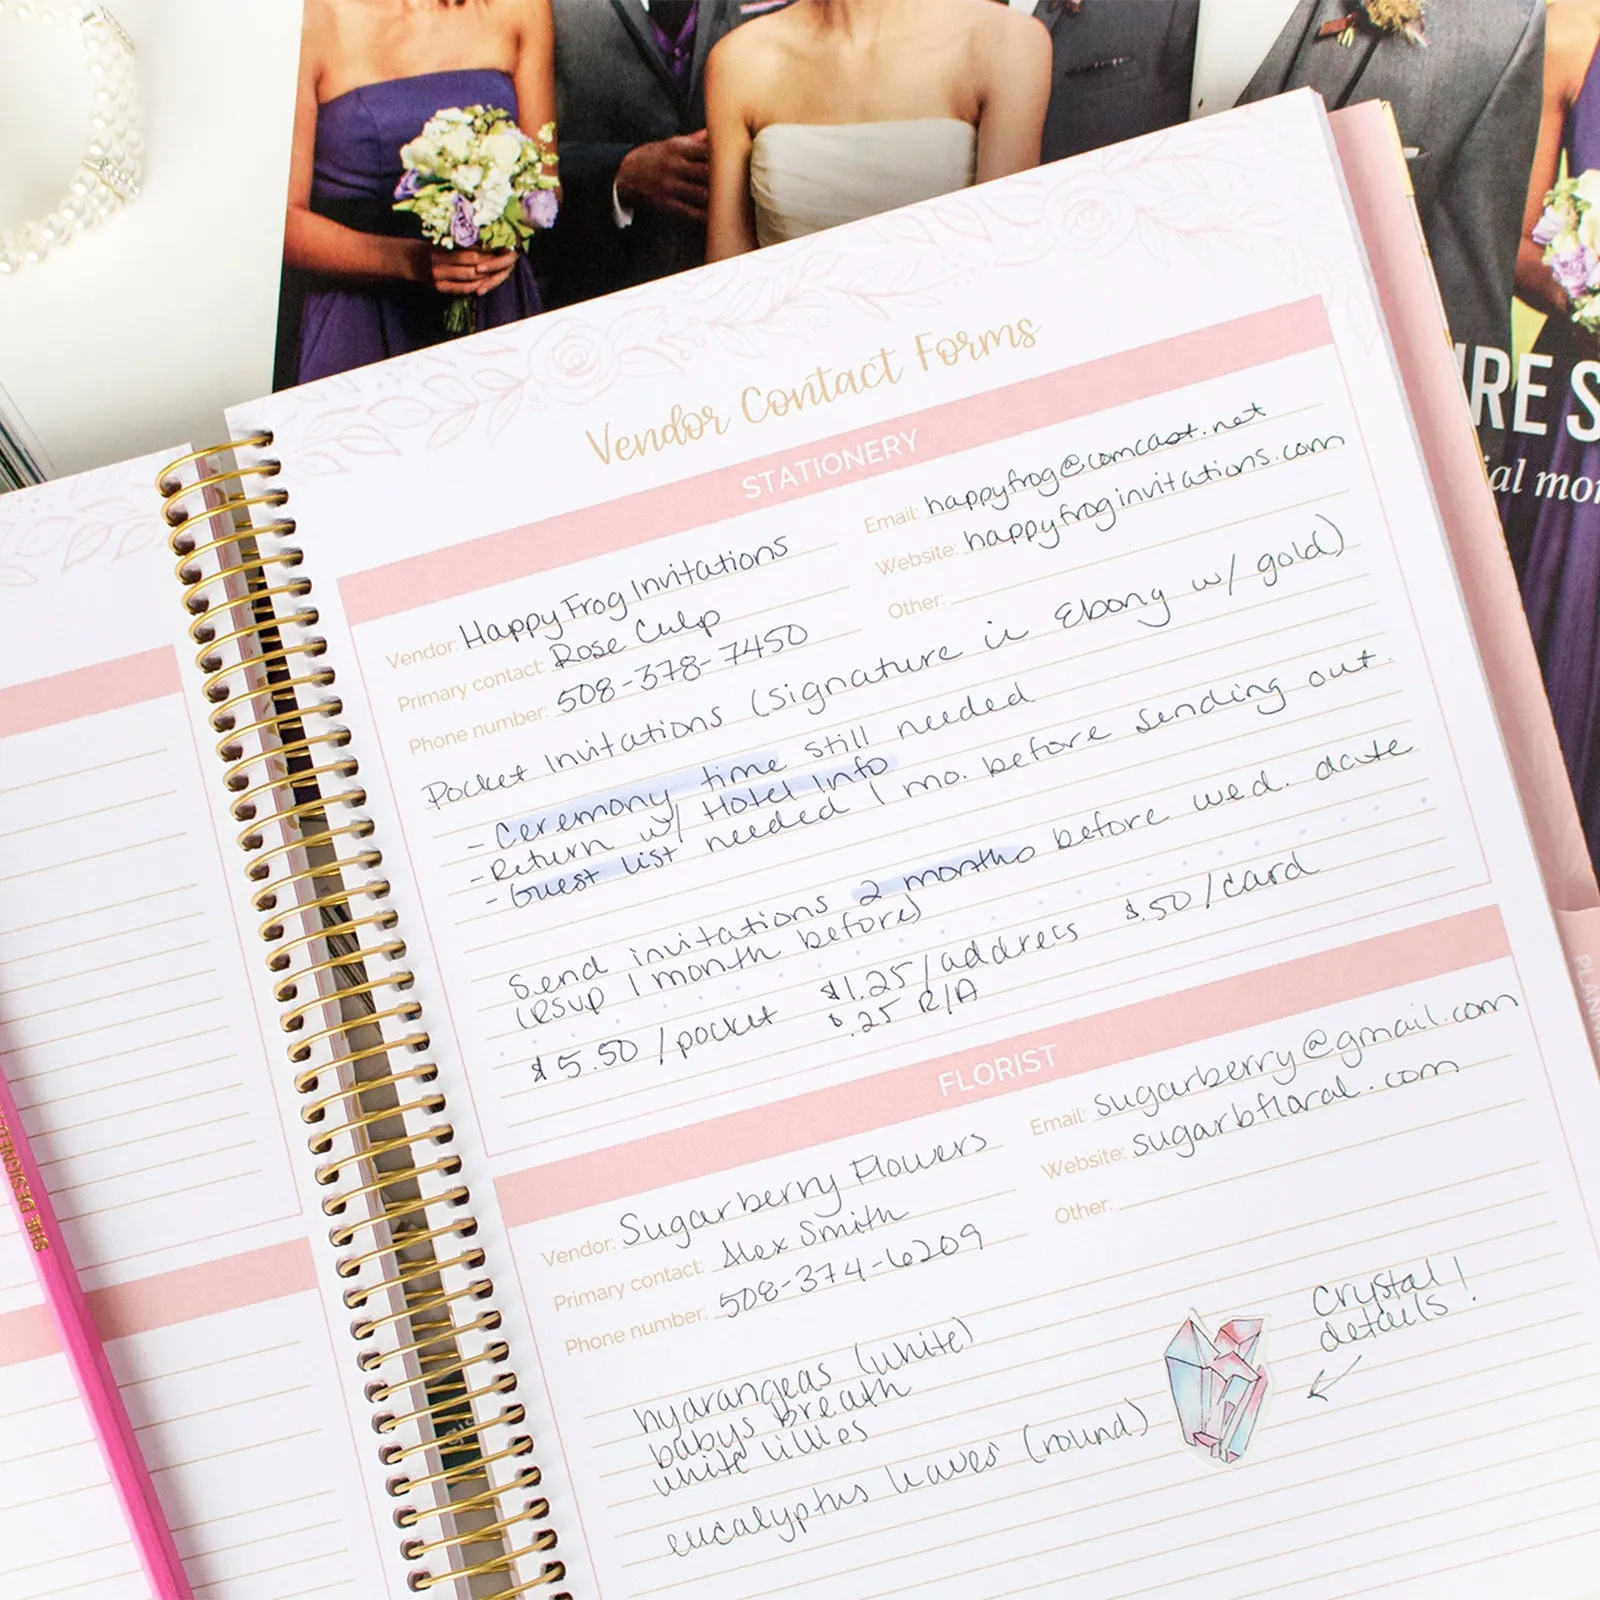 IRE S
ial mo
Vendor Contact Forms
STATIONERY
Vendor: Happy Frog Invitations
Primary contact: Rose Culp
Phone number: 508-378-7450
Email: happyfrog@comcast.net
Website: happyfroginvitations.com
Other:
Pocket Invitations (signature in Ebony w/ gold)
- Ceremony time still needed
- Return w/ Hotel Info
- Guest list needed 1 mo. before sending out.
Send invitations 2 months before wed. date
(RSVP 1 month before)
$5.50/pocket $1.25/address $.50/card
$.25 R/A
FLORIST
Vendor: Sugarberry Flowers
Primary contact: Alex Smith
Phone number: 508-374-6209
Email: sugarberry@gmail.com
Website: sugarbfloral.com
Other:
hydrangeas (white)
babys breath
white lillies
eucalyptus leaves (round)
Crystal
details!
SIR DESIGNED
PLANN